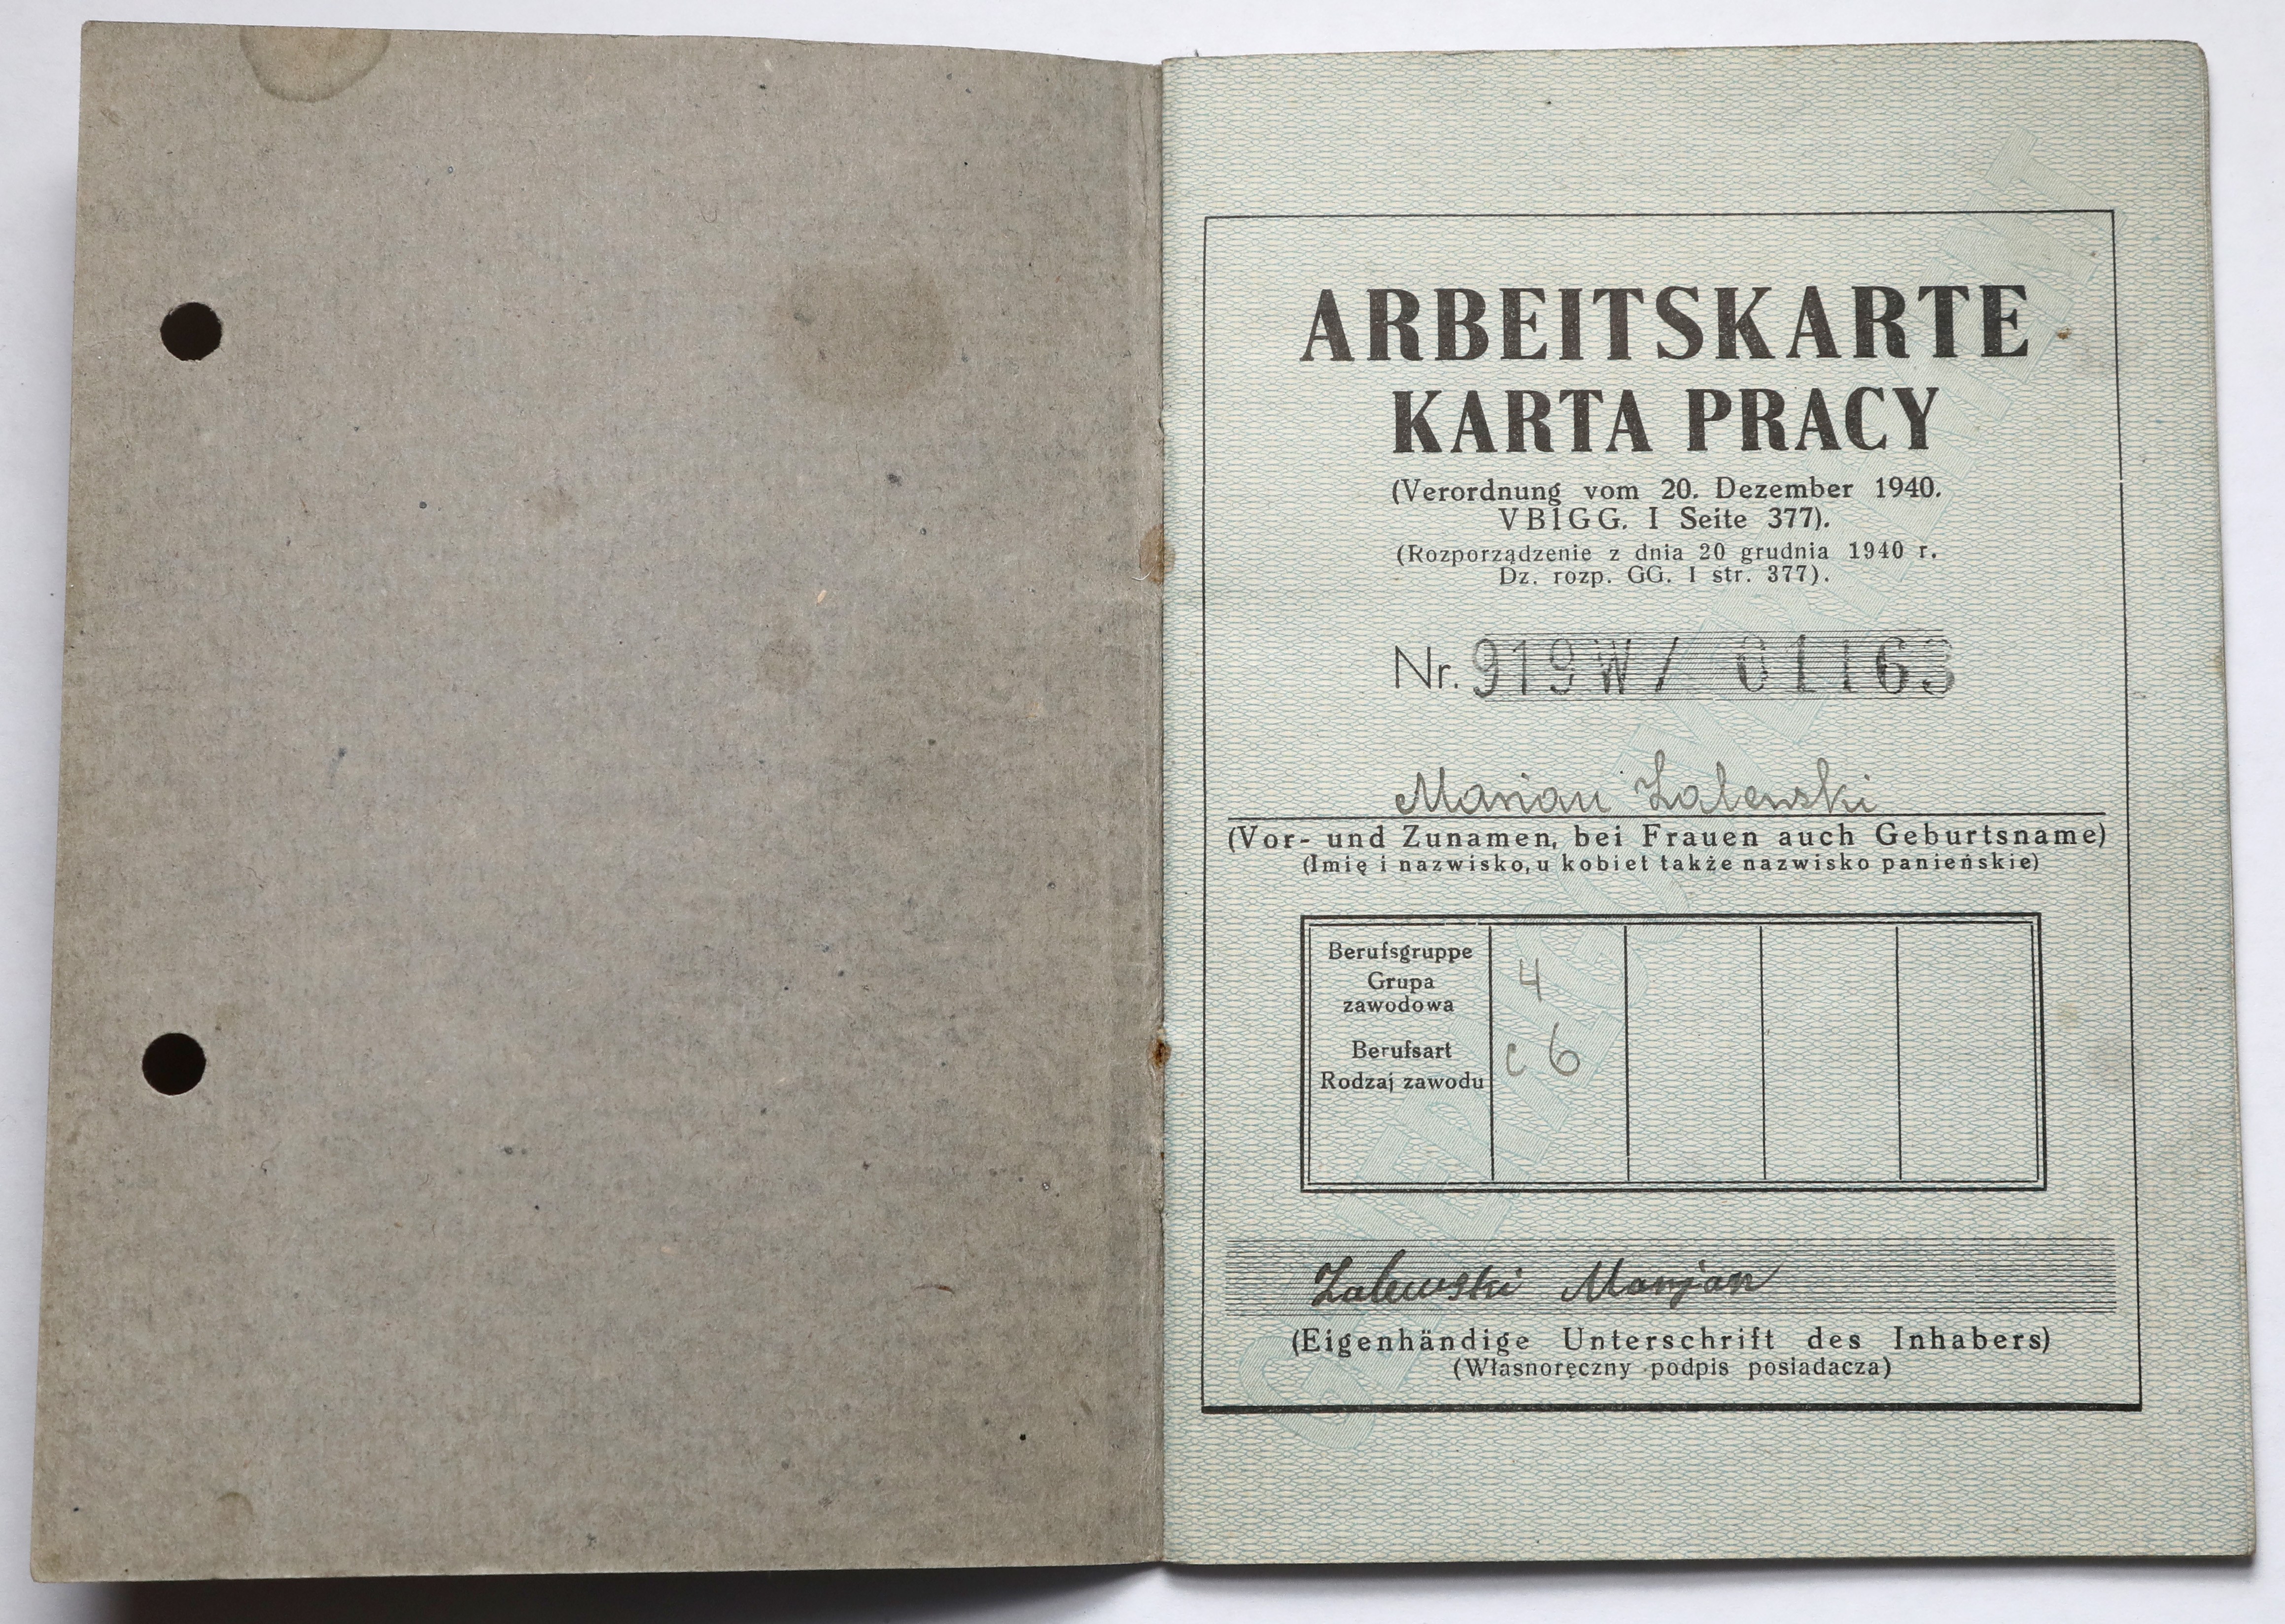 ARBEITSKARTE
KARTA PRACY
(Verordnung vom 20. Dezember 1940.
VBlGG. I Seite 377).
(Rozporządzenie z dnia 20 grudnia 1940 r.
Dz. rozp. GG. I str. 377).
Nr. 919W/ 01163
Marian Zalewski
(Vor- und Zunamen, bei Frauen auch Geburtsname)
(Imię i nazwisko, u kobiet także nazwisko panieńskie)
Berufsgruppe
Grupa
zawodowa
4
Berufsart
Rodzaj zawodu
c 6
Zalewski Marjan
(Eigenhändige Unterschrift des Inhabers)
(Własnoręczny podpis posiadacza)
GENERALGOUVERNEMENT